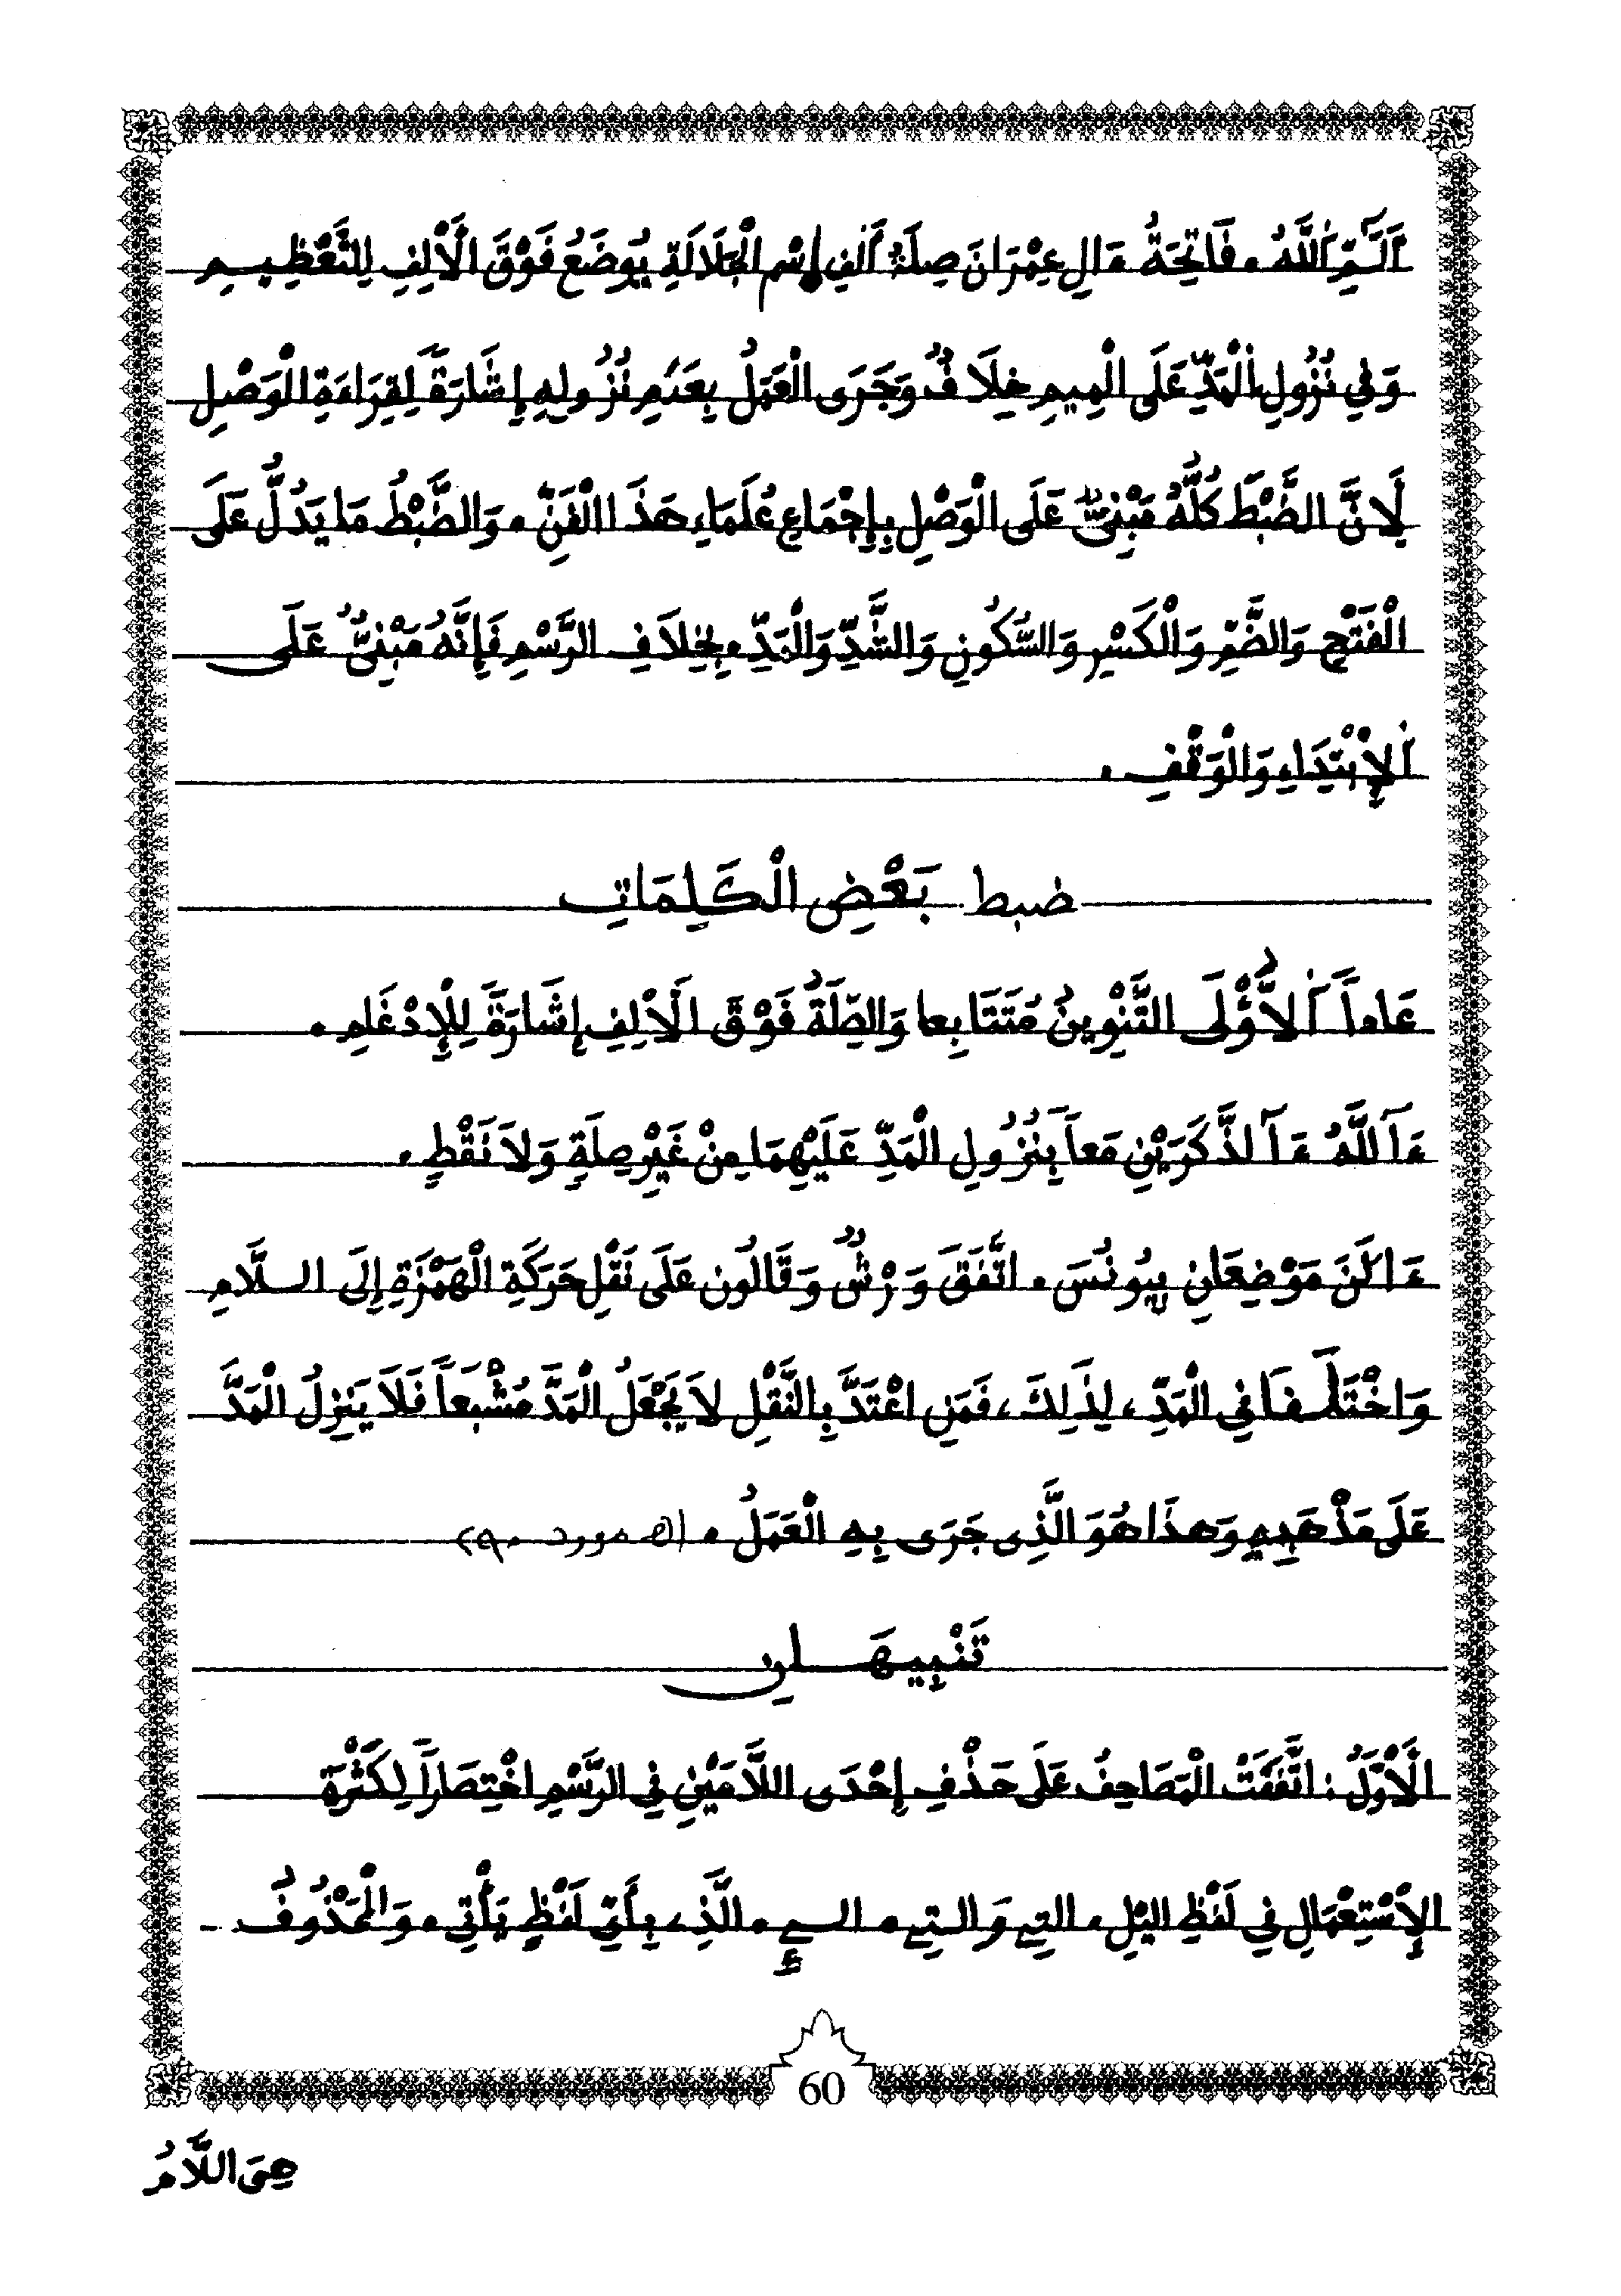 أَلَٓمِّٓ أَللَّهُ . فَاتِحَةُ ءَالِ عِمْرَانَ صِلَةُ أَلِفِ إِسْمِ الْجَلَالَةِ يُوضَعُ فَوْقَ الْأَلِفِ لِلتَّعْظِيمِ
وَفِي نُزُولِ الْمَدِّ عَلَى الْمِيمِ خِلَافٌ وَجَرَى الْعَمَلُ بِعَدَمِ نُزُولِهِ إِشَارَةً لِقِرَاءَةِ الْوَصْلِ
لِأَنَّ الضَّبْطَ كُلَّهُ مَبْنِيٌّ عَلَى الْوَصْلِ بِإِجْمَاعِ عُلَمَاءِ هَذَا الْفَنِّ . وَالضَّبْطُ مَا يَدُلُّ عَلَى
الْفَتْحِ وَالضَّمِّ وَالْكَسْرِ وَالسُّكُونِ وَالشَّدِّ وَالْمَدِّ . بِخِلَافِ الرَّسْمِ فَإِنَّهُ مَبْنِيٌّ عَلَى
الْإِبْتِدَاءِ وَالْوَقْفِ .
ضبط بَعْضِ الْكَلِمَاتِ
عَاداً اَ۬لُّاولَى التَّنْوِينُ مُتَتَابِعا وَالصِّلَةُ فَوْقَ الْأَلِفِ إِشَارَةً لِلْإِدْغَامِ .
ءَآللَّهُ ءَآلذَّكَرَيْنِ مَعاً بِنُزُولِ الْمَدِّ عَلَيْهِمَا مِنْ غَيْرِ صِلَةٍ وَلَا نَقْطٍ .
ءَالَنَ مَوْضِعَانِ بِيُونُسَ . اتَّفَقَ وَرْشٌ وَقَالُون عَلَى نَقْلِ حَرَكَةِ الْهَمْزَةِ إِلَى السلَّامِ
وَاخْتَلَفَا فِي الْمَدِّ ، لِذَلِكَ ، فَمَنِ اعْتَدَّ بِالنَّقْلِ لَا يَجْعَلُ الْمَدَّ مُشْبَعاً فَلَا يَنزِلُ الْمَدَّ
عَلَى مَذْهَبِهِ وَهذَا هُوَ الَّذِي جَرَى بِهِ الْعَمَلُ .
تَنْبِيهَانِ
الْأَوَّلُ : اتَّفَقَتْ الْمَصَاحِفُ عَلَى حَذْفِ إِحْدَى اللَّامَيْنِ فِي الرَّسْمِ اخْتِصَاراً لِكَثْرَةِ
الْإِسْتِعْمَالِ فِي لَفْظِ اليْلِ ، التِے وَالتِے . الے . الَّذِ ، بِأَيِّ لَفْظٍ يَأْتِي . وَالْمَحْذُوفُ
60
هِيَ اللَّامُ